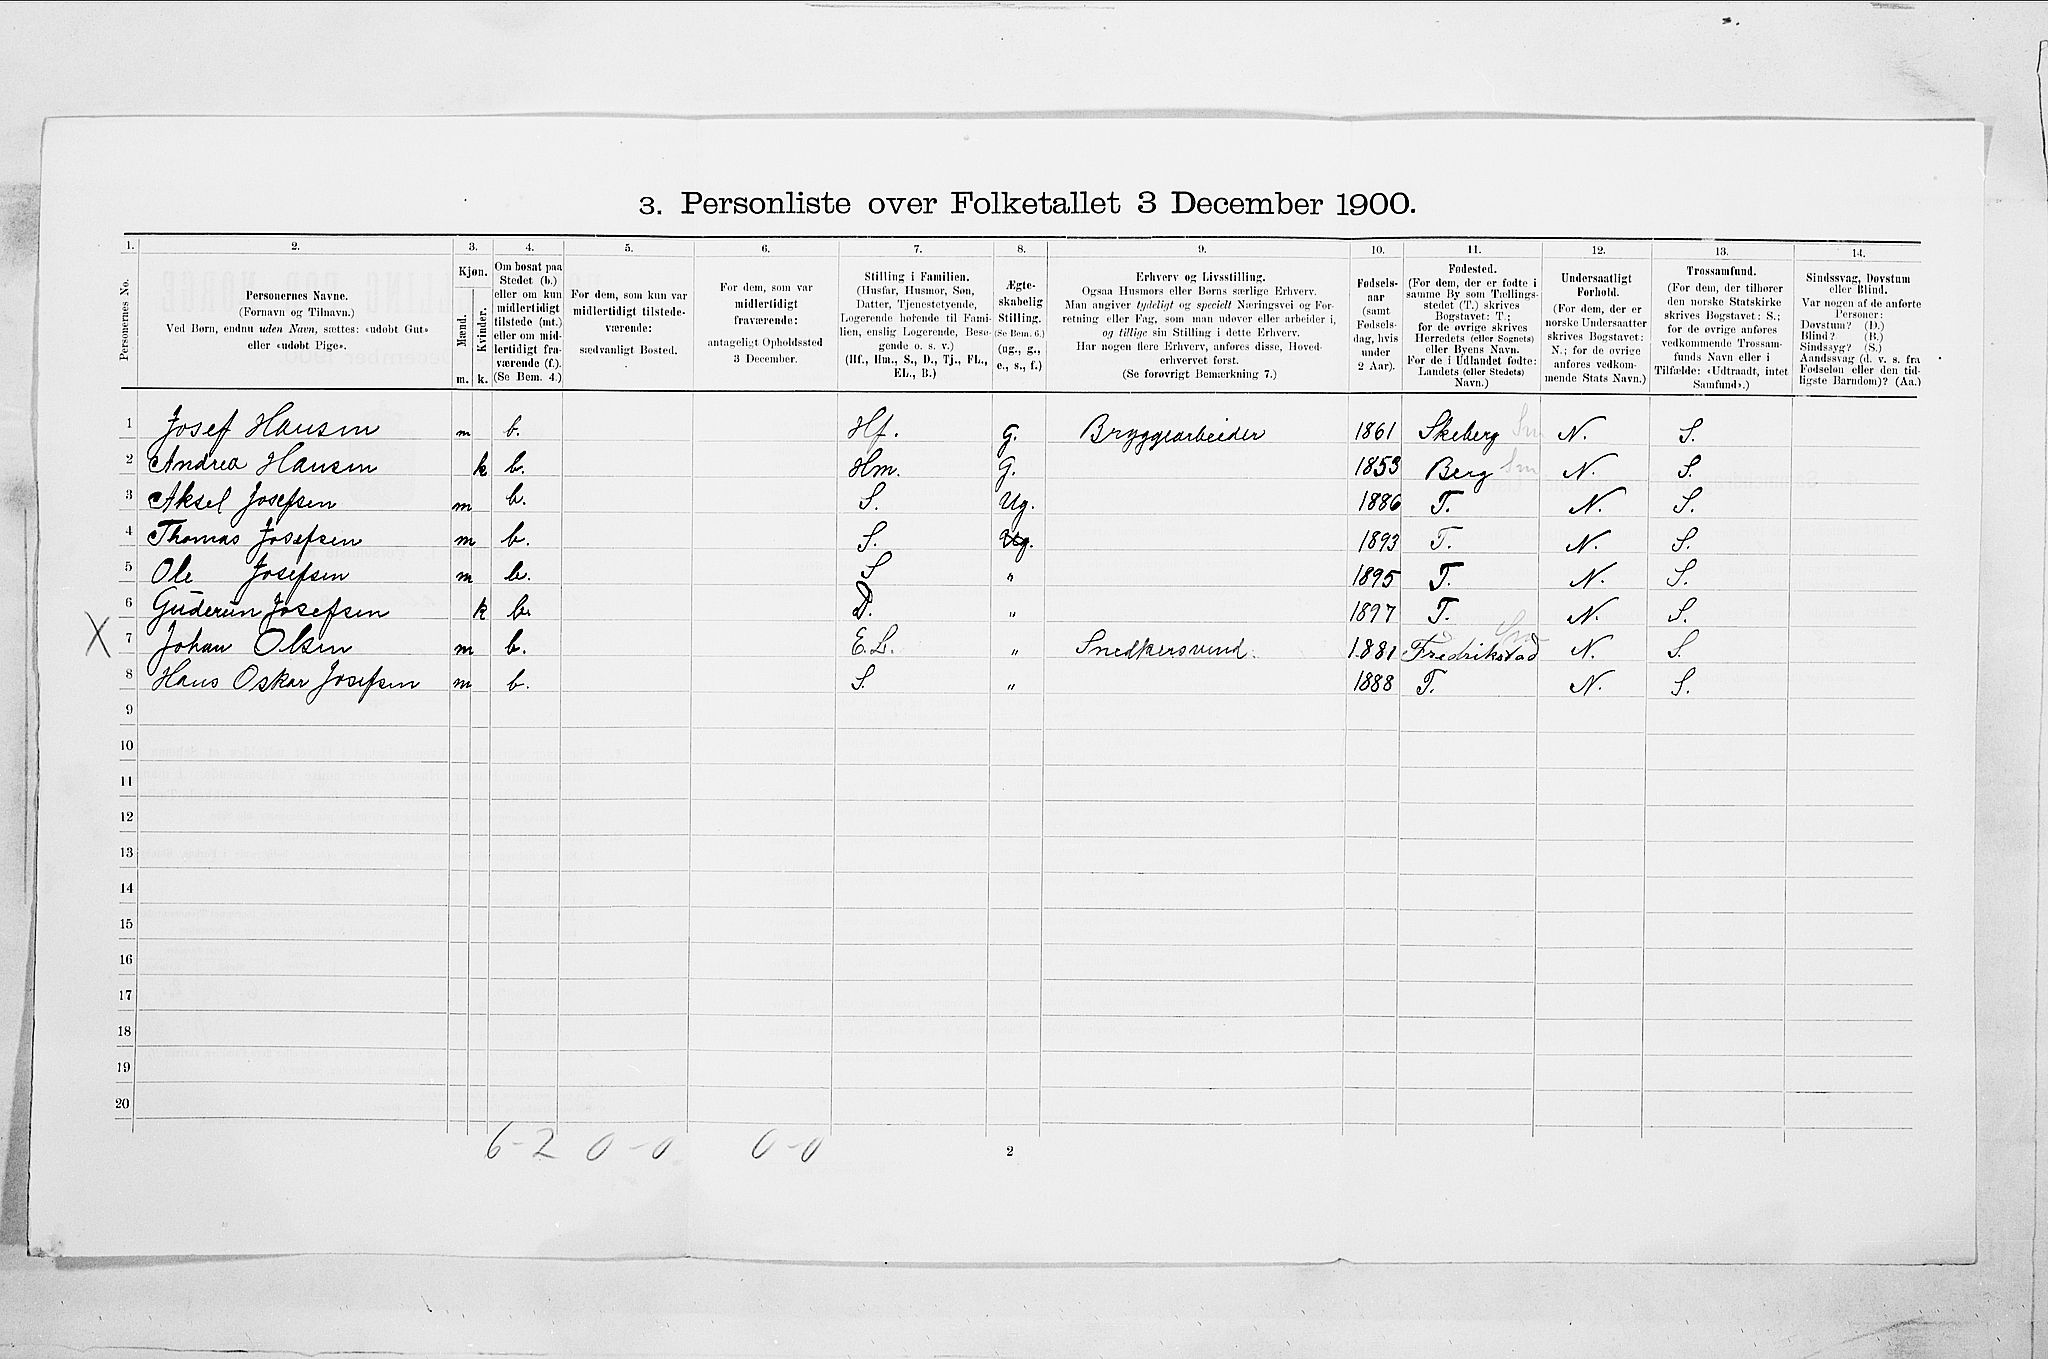 3. Personliste over Folketallet 3 December 1900.
1. 2. 3. 4. 5. 6. 7. 8. 9. 10. 11. 12. 13. 14.
Personernes No.
Personernes Navne.
(Fornavn og Tilnavn.)
Ved Børn, endnu uden Navn, sættes: «udøbt Gut»
eller «udøbt Pige».
Kjøn.
Mænd.
Kvinder.
m. k.
Om bosat paa
Stedet (b.)
eller om kun
midlertidigt
tilstede (mt.)
eller om mid-
lertidigt fra-
værende (f.).
(Se Bem. 4.)
For dem, som kun var
midlertidigt tilstede-
værende:
sædvanligt Bosted.
For dem, som var
midlertidigt
fraværende:
antageligt Opholdssted
3 December.
Stilling i Familien.
(Husfar, Husmor, Søn,
Datter, Tjenestetyende,
Logerende hørende til Fami-
lien, enslig Logerende, Besø-
gende o. s. v.)
(Hf., Hm., S., D., Tj., FL.,
EL., B.)
Ægte-
skabelig
Stilling.
(Se Bem. 6.)
(ug., g.,
e., s., f.)
Erhverv og Livsstilling.
Ogsaa Husmors eller Børns særlige Erhverv.
Man angiver tydeligt og specielt Næringsvei og For-
retning eller Fag, som man udøver eller arbeider i,
og tillige sin Stilling i dette Erhverv.
Har nogen flere Erhverv, anføres disse, Hoved-
erhvervet først.
(Se forøvrigt Bemærkning 7.)
Fødsels-
aar
(samt
Fødsels-
dag, hvis
under
2 Aar).
Fødested.
(For dem, der er fødte i
samme By som Tællings-
stedet (T.) skrives
Bogstavet: T.;
for de øvrige skrives
Herredets (eller Sognets)
eller Byens Navn.
For de i Udlandet fødte:
Landets (eller Stedets)
Navn.)
Undersaatligt
Forhold.
(For dem, der er
norske Undersaatter
skrives Bogstavet:
N.; for de øvrige
anføres vedkom-
mende Stats Navn.)
Trossamfund.
(For dem, der tilhører
den norske Statskirke
skrives Bogstavet: S.;
for de øvrige anføres
vedkommende Trossam-
funds Navn eller i
Tilfælde: «Udtraadt, intet
Samfund».)
Sindssvag, Døvstum
eller Blind.
Var nogen af de anførte
Personer:
Døvstum? (D.)
Blind? (B.)
Sindssyg? (S.)
Aandssvag (d. v. s. fra
Fødselen eller den tid-
ligste Barndom)? (Aa.)
1 Josef Hansen m b. Hf. G. Bryggearbeider 1861 Skeberg Sm N. S.
2 Andrea Hansen k b. Hm. G. 1853 Berg Sm N. S.
3 Aksel Josefsen m b. S. Ug. 1886 T. N. S.
4 Thomas Josefsen m b. S. Ug. 1893 T. N. S.
5 Ole Josefsen m b. S " 1895 T. N. S.
6 Guderun Josefsen k b. D. " 1897 T. N. S.
X 7 Johan Olsen m b. E.L. " Snedkersvend. 1881 Fredrikstad Sm N. S.
8 Hans Oskar Josefsen m b. S. " 1888 T. N. S.
9
10
11
12
13
14
15
16
17
18
19
20
6-2 0-0 0-0
2